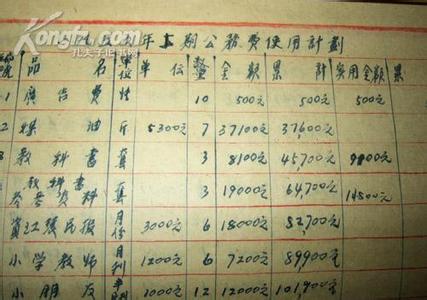 Kongfz.com
孔夫子旧书网
年上期公務費使用計劃
品名 單位 單価 數 金額 累計 实用金額 累
1 廣告費 10 500元 500元 500元
2 煤油 斤 5300元 7 37100元 37,600元
3 教科書 套 3 8100元 45,700元 9800元
教科書
参考資料 套 3 19000元 64,700元 14800元
資江農民報 月份 3000元 6 18000元 82,700元
小学教师 月刊 1200元 6 7200元 89,900元
小朋友 半月刊 1000元 12 12000元 101,900元